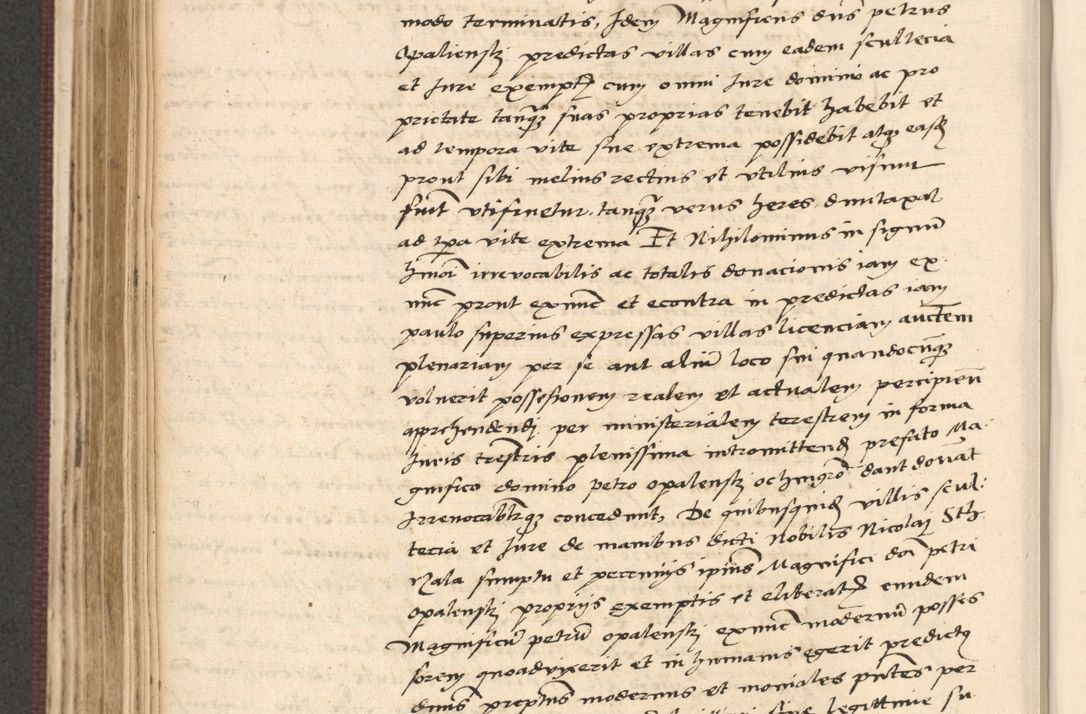 modo terminatis, Idem Magnificus dns petrus
Opalienskj predictas villas cum eadem scultecia
et Jure exempt cum omni Jure dominio ac pro
prietate tanq suas proprias tenebit habebit et
ad tempora vite sue extrema possidebit atq easq
prout sibi melius rectius et utilius visum
fuit utifruetur, tanq verus heres, duntaxat
ad tpa vite extrema Et Nihilominus in signum
hmoi irrevocabilis ac totalis donacionis iam ex
nunc prout exnunc et econtra in predictas iam
paulo superius expressas villas licenciam auctem
plenariam per se aut alium loco sui quandocunq
voluerit possesionem realem et actualem percipien
aprehendendj per ministerialem terestrem in forma
Juris trestris plenissima intromittend prefato Ma
gnifico domino petro opalenskj dant donat
Irrevocabltrq concedunt, De quibusquid villis scul
tecia et Jure de manibus dicti Nobilis Nicolaj Sth
Nala sumptu et pecunijs ipius Magnifici dni petri
opalenskj proprijs exemptis et eliberat eundem
Magnificum petrum opalenskj exnunc modernum posses
sorem quoadvixerit et in humanis egerit predictq
dnus preptus modernus et moniales pntes per
sive legittime su